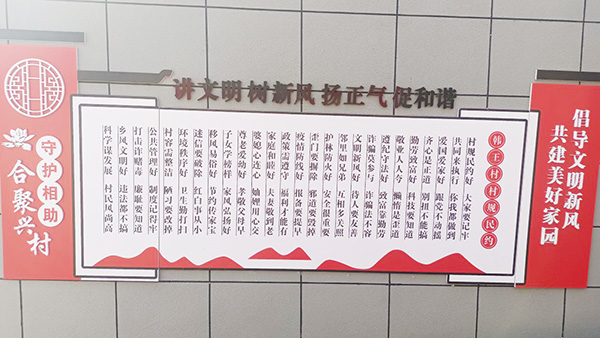 讲文明 树新风 扬正气 促和谐
倡导文明新风
共建美好家园
韩王村村规民约
村规民约好 大家要记牢
共同来执行 你我都做到
爱国爱家好 跟党不动摇
齐心是正道 别扭不能搞
勤劳致富好 科技要知道
敬业人人夸 懒惰是歪道
遵纪守法好 致富靠勤劳
诈骗莫参与 诈骗法不容
文明新风好 待人要友善
邻里如兄弟 互相多关照
护林防火好 安全很重要
歪门要摒除 邪道要毁掉
疫情防线好 报备要提早
政策需遵守 福利才能有
家庭和睦好 夫妻敬到老
婆媳心连心 妯娌用心交
尊老爱幼好 孝敬父母早
子女学榜样 家风弘扬好
移风易俗好 节约传家宝
迷信要破除 红白事从小
环境秩序好 卫生勤打扫
村容需整洁 陋习要改掉
公共管理好 制度记得牢
打击诈赌毒 廉耻要知道
乡风文明好 违法都不搞
科学谋发展 村民风尚高
守护相助
合聚兴村